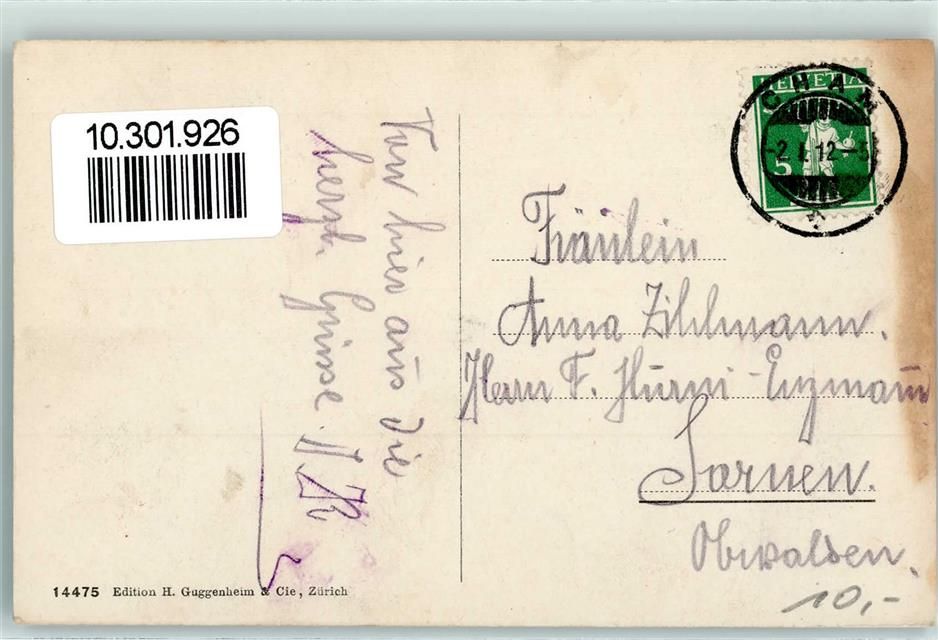 10.301.926
Von hier aus die
herzl. Grüsse.
HELVETIA
5
CHAM
-2.I.12.-5
Fräulein
Anna Zihlmann.
Herrn F. Hurni-Enzmann
Sarnen.
Obwalden.
10,-
14475 Edition H. Guggenheim & Cie, Zürich